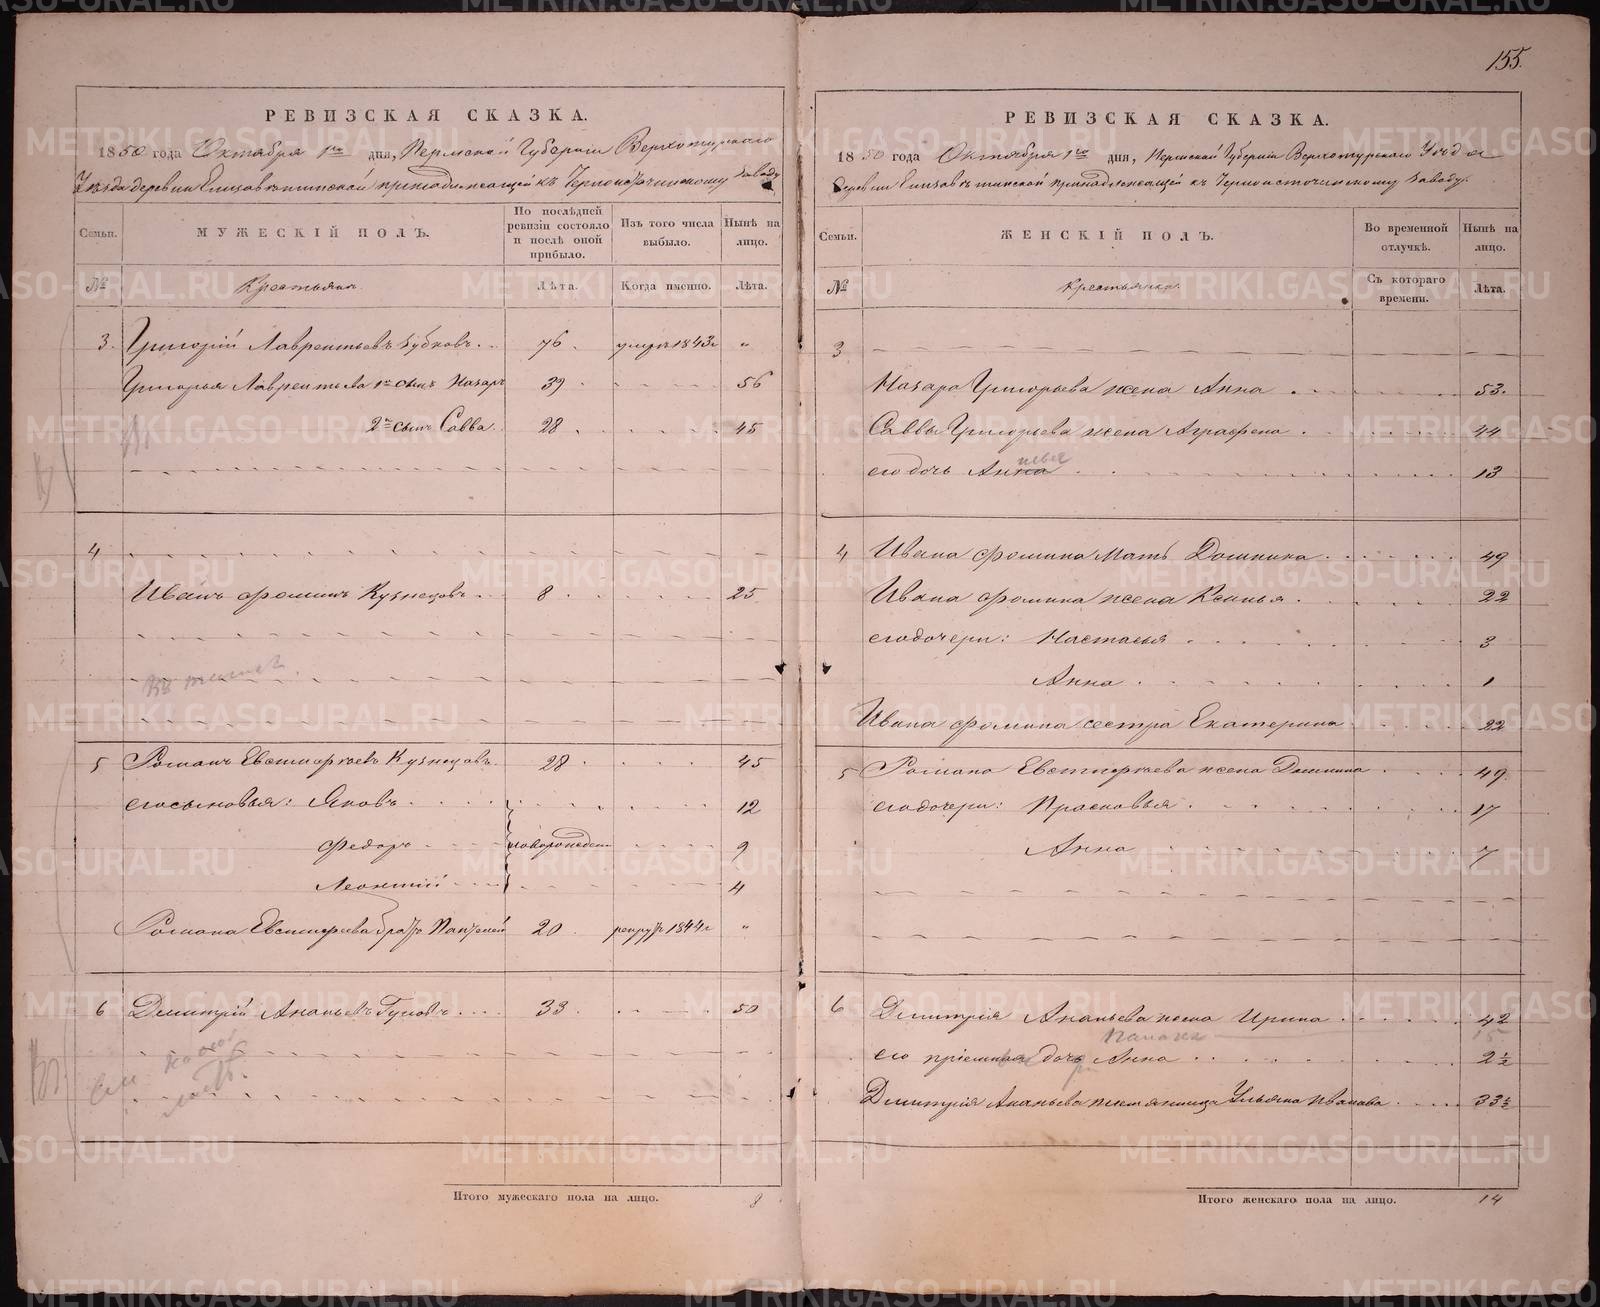 155.
РЕВИЗСКАЯ СКАЗКА.
1850 года Октября 1го дня, Пермской Губернии Верхотурского
Уезда деревни Елизаветинской принадлежащей къ Черноисточинскому заводу
Семьи.
МУЖЕСКІЙ ПОЛЪ.
По послѣдней ревизіи состояло и послѣ оной прибыло.
Изъ того числа выбыло.
Нынѣ на лицо.
№
Крестьяне.
Лѣта.
Когда именно.
Лѣта.
3. Григорій Лаврентьевъ Зубковъ. 76. умеръ 1843г "
Григорья Лаврентьева 1й сынъ Назаръ 39 56
2й сынъ Савва. 28 45
4
Иванъ Фоминъ Кузнецовъ 8 25
5 Романъ Евстигнѣевъ Кузнецовъ. 28 45
его сыновья: Яковъ 12
Федоръ новорожден 9
Леонтій 4
Романа братъ 20 рекрутъ 1844г "
6 Дмитрій Ананьевъ 33 50
Итого мужескаго пола на лицо. 9
РЕВИЗСКАЯ СКАЗКА.
1850 года Октября 1го дня, Пермской Губерніи Верхотурского Уезда
деревни Елизаветинской принадлежащей къ Черноисточинскому заводу.
Семьи.
ЖЕНСКІЙ ПОЛЪ.
Во временной отлучкѣ.
Нынѣ на лицо.
№
Крестьянки.
Съ котораго времени.
Лѣта.
3
Назара Григорьева жена Анна 53.
Саввы Григорьева жена Аграфена 44
его дочь Анна 13
4 Ивана Фомина мать Домника 49
Ивана Фомина жена Ксенья 22
его дочери: Настасья 3
Анна 1
Ивана Фомина сестра Екатерина 22
5 Романа Евстигнѣева жена Домника 49
его дочери: Прасковья 17
Анна 7
6 Дмитрія Ананьева жена Ирина 42
его пріемная дочь Анна 2½
Дмитрія Ананьева Ульяна Иванова 33½
Итого женскаго пола на лицо. 14
METRIKI.GASO-URAL.RU